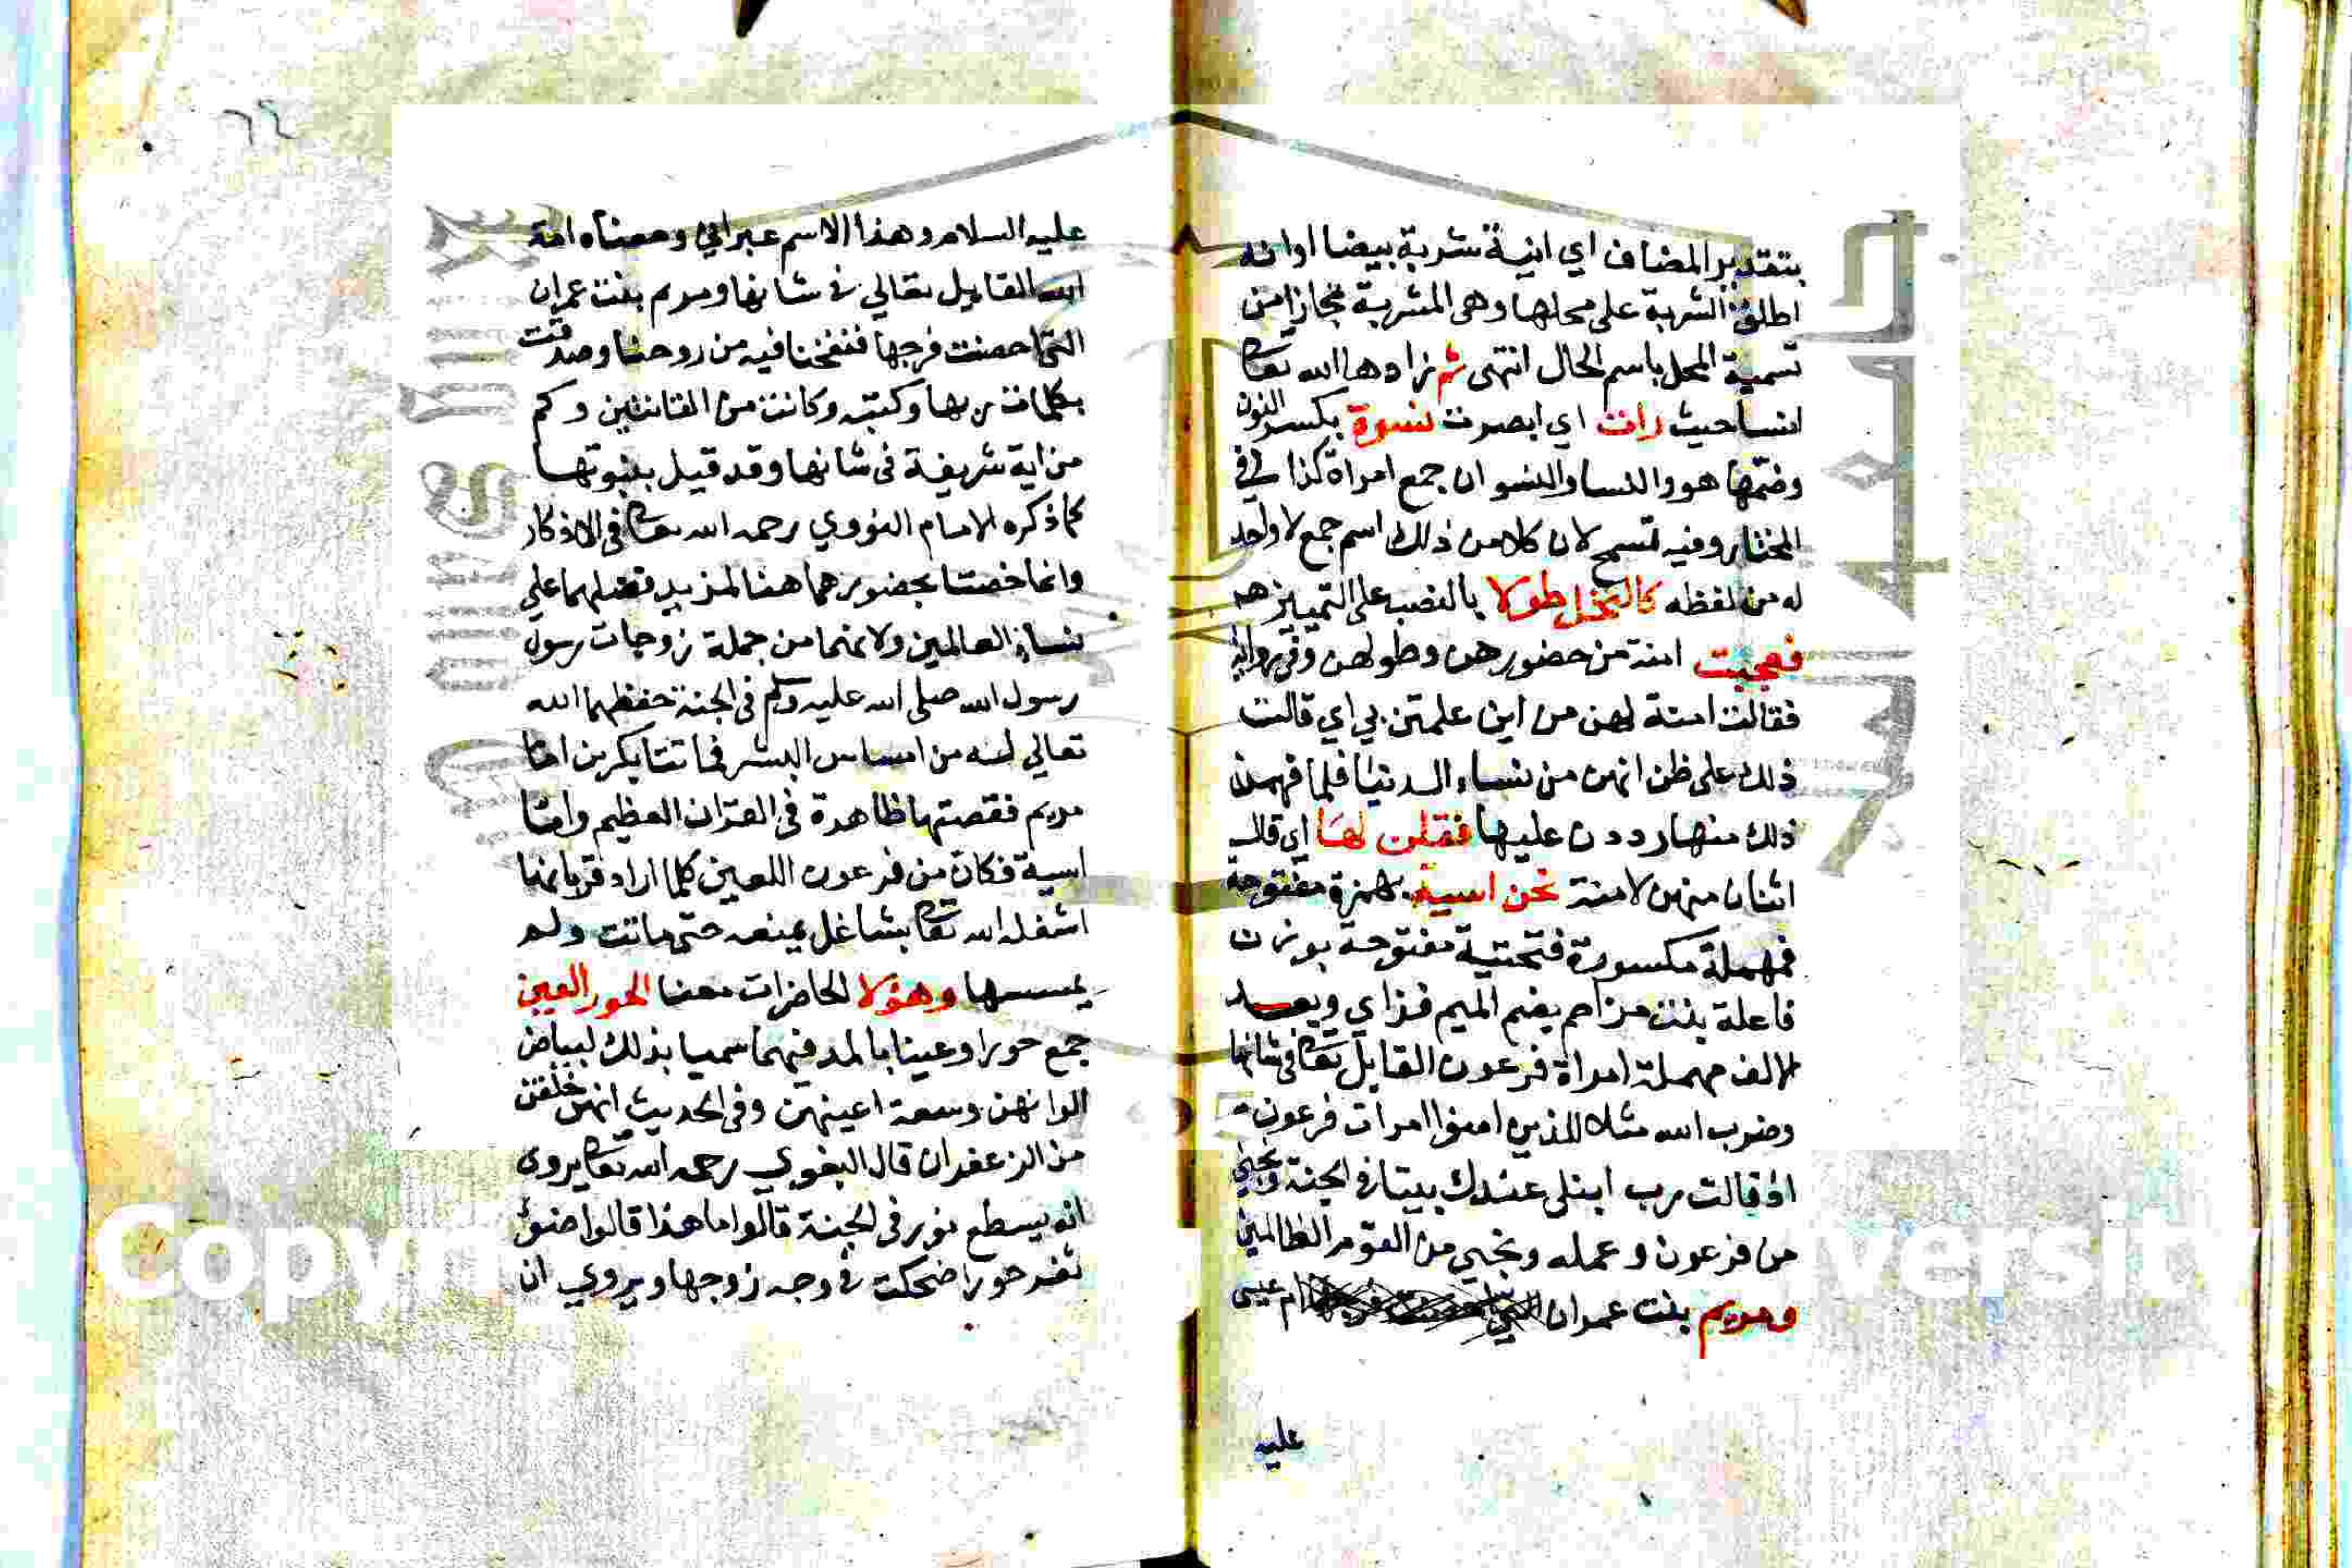 بتقدير المضاف اي انية شربة بيضا اوانه
اطلق الشربة على محلها وهى المشربة مجازا من
تسمية المحل باسم الحال انتهى ثم زادها الله تعا
انسا حيث رات اي ابصرت نسوة بكسر النون
وضمها هو والنسا والنسوان جمع امراة كذا في
المختار وفيه تسمح لان كلا من ذلك اسم جمع لا واحد
له من لفظه كالنخل طولا بالنصب على التمييز هـ
فعجبت امنة من حضورهن وطولهن وفي رواية
فقالت امنة لهن من اين علمتن بي اي قالت
ذلك على ظن انهن من نساء الدنيا فلما فهمن
ذلك منها رددن عليها فقلن لها اي قال
اثنتان منهن لامنة نحن اسية بهمزة مفتوحة
فمهملة مكسورة فتحتية مفتوحة بوزن
فاعلة بنت مزاحم بضم الميم فزاي وبعد
الالف مهملة امراة فرعون القايل تعا في شانها
وضرب الله مثلا للذين امنوا امرات فرعون
اذ قالت رب ابنلى عندك بيتا في الجنة ونجني
من فرعون وعمله ونجني من القوم الظالمين
ومريم بنت عمران ام عيسى
عليه
٦٤
عليه السلام وهذا الاسم عبراني ومعناه امة
الله القايل تعالي في شانها ومريم بنت عمران
التي احصنت فرجها فنفخنا فيه من روحنا وصدقت
بكلمات ربها وكتبه وكانت من القانتين وكم
من اية شريفة فى شانها وقد قيل بنبوتها
كما ذكره الامام النووي رحمه الله تعا فى الاذكار
وانما خصتا بحضورهما هنا لمزيد فضلهما علي
نساء العالمين ولانهما من جملة زوجات رسول
رسول الله صلى الله عليه وسلم فى الجنة حفظهما الله
تعالي له من امساس البشر فماتتا بكرين اما
مريم فقصتها ظاهرة فى القران العظيم واما
اسية فكان من فرعون اللعين كلما اراد قربانها
اشغله الله تعا بشاغل يمنعه حتى ماتت ولم
يمسسها وهؤلا الحاضرات معنا الحور العين
جمع حورا وعينا بالمد فيهما سميا بذلك لبياض
الوانهن وسعة اعينهن وفى الحديث انهن خلقن
من الزعفران قال البغوي رحمه الله تعا يروى
انه يسطع نور فى الجنة قالوا ما هذا قالوا ضوء
ثغر حورا ضحكت في وجه زوجها ويروي ان